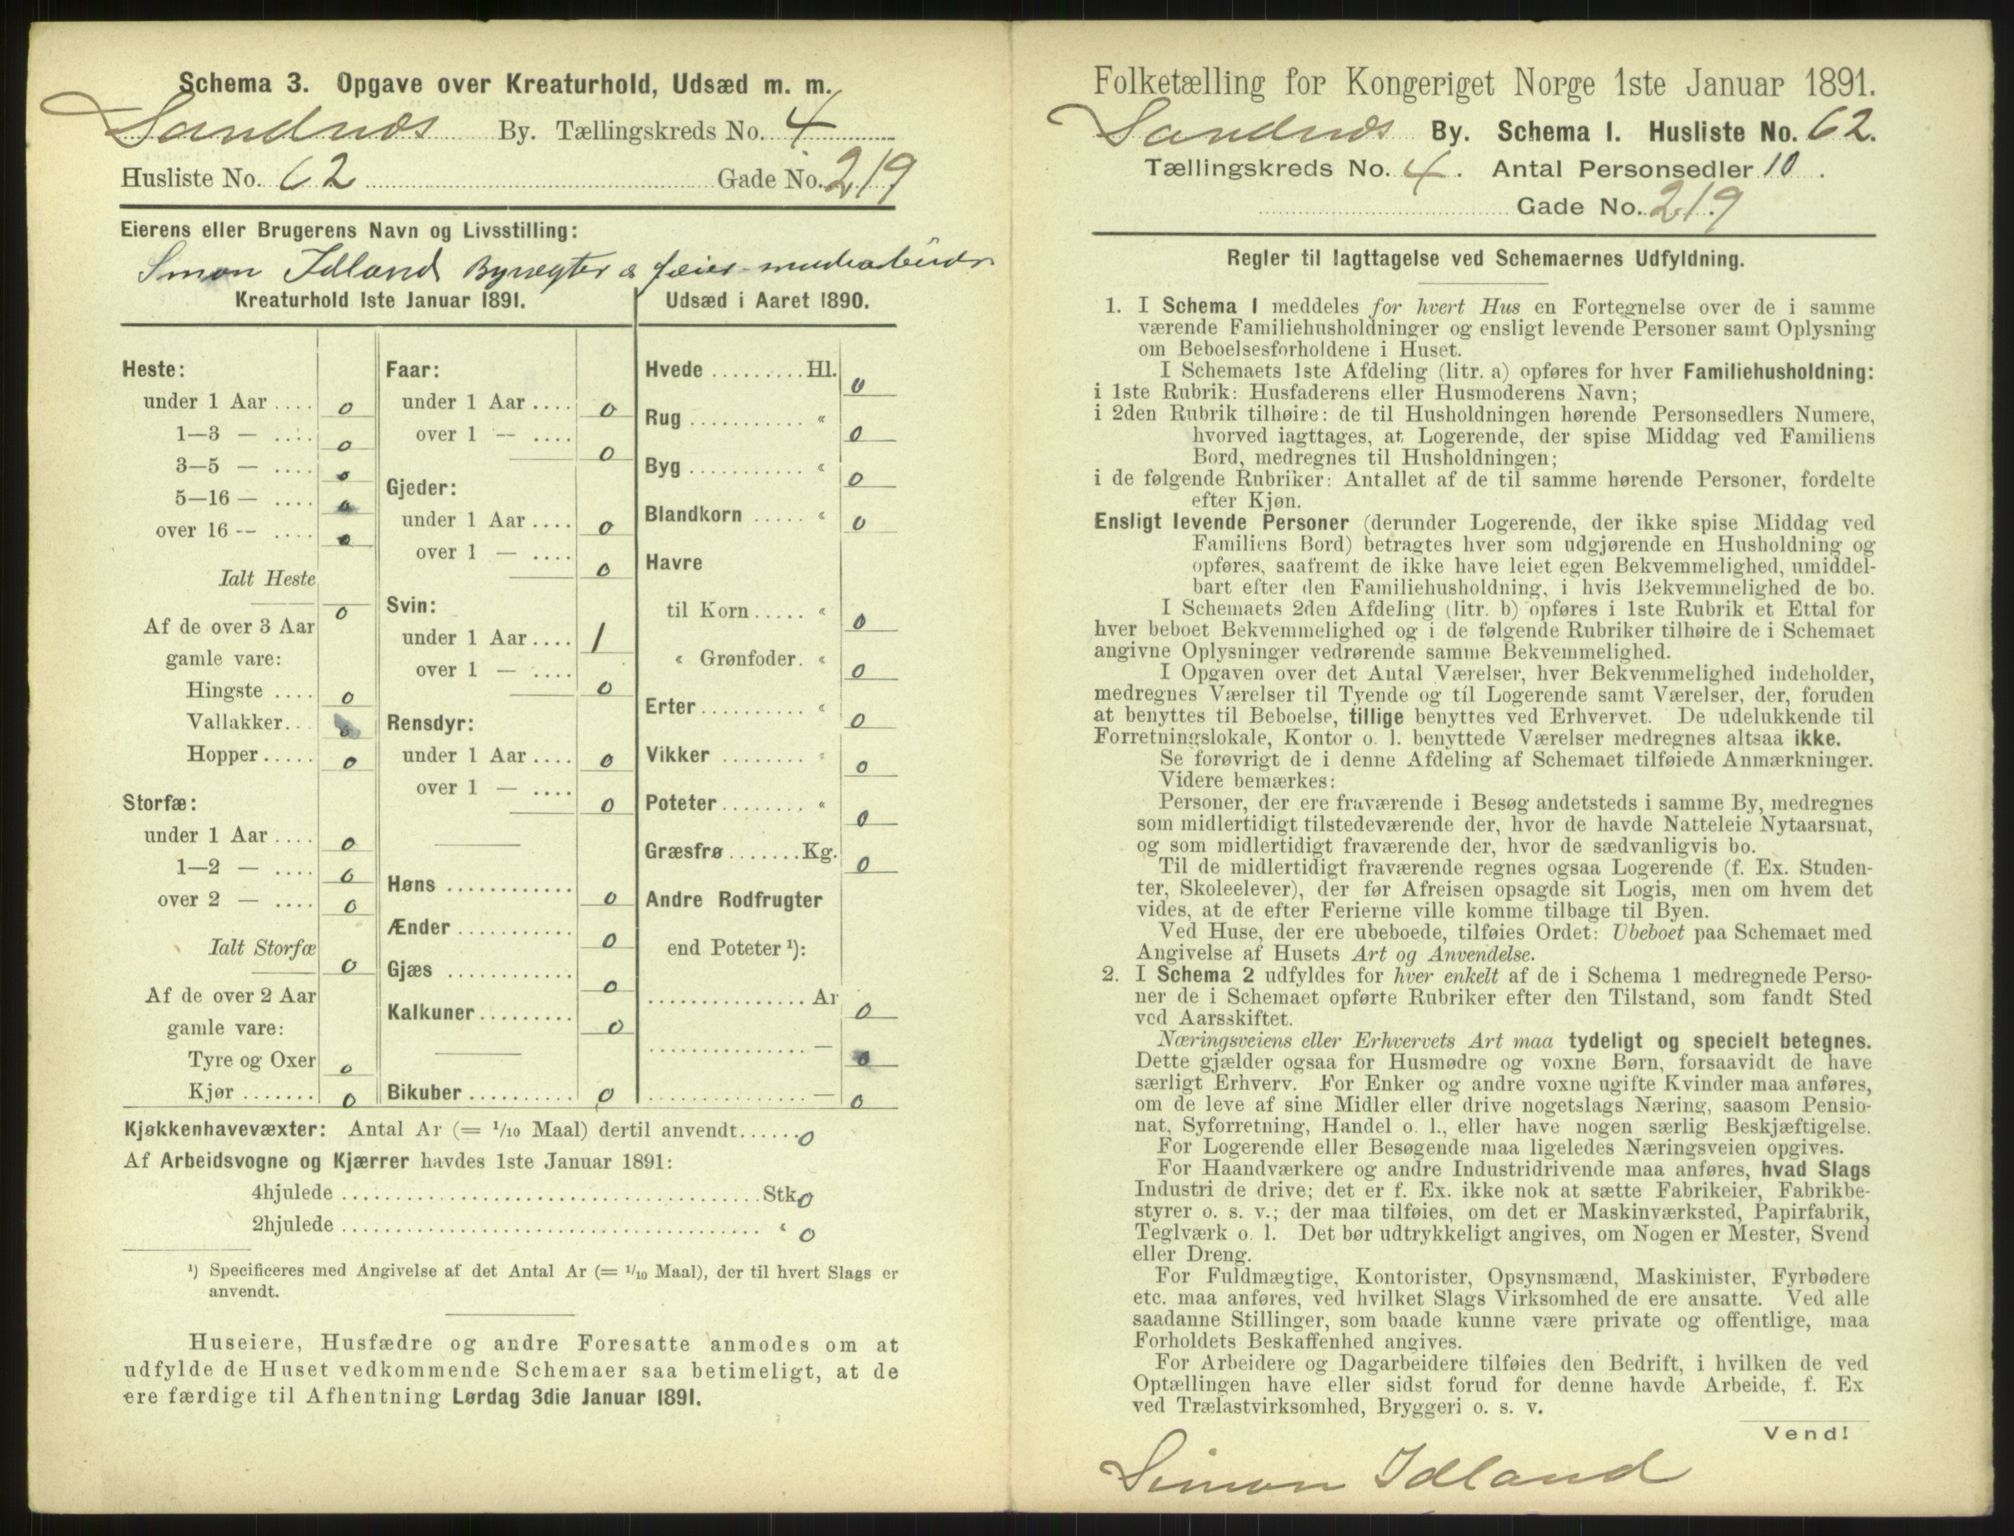 Schema 3. Opgave over Kreaturhold, Udsæd m. m.
Sandnæs By. Tællingskreds No. 4
Husliste No. 62 Gade No. 219
Eierens eller Brugerens Navn og Livsstilling:
Simon Idland Bynægter & feier
Kreaturhold 1ste Januar 1891.
Heste:
under 1 Aar .... 0
1—3 — .... 0
3—5 — .... 0
5—16 — .... 0
over 16 — .... 0
Ialt Heste 0
Af de over 3 Aar
gamle vare:
Hingste .... 0
Vallakker.. 0
Hopper..... 0
Storfæ:
under 1 Aar .... 0
1—2 — .... 0
over 2 — .... 0
Ialt Storfæ 0
Af de over 2 Aar
gamle vare:
Tyre og Oxer 0
Kjør ....... 0
Faar:
under 1 Aar .... 0
over 1 — .... 0
Gjeder:
under 1 Aar .... 0
over 1 — .... 0
Svin:
under 1 Aar .... 1
over 1 — .... 0
Rensdyr:
under 1 Aar .... 0
over 1 — .... 0
Høns ............ 0
Ænder ........... 0
Gjæs ............ 0
Kalkuner ......... 0
Bikuber .......... 0
Udsæd i Aaret 1890.
Hvede ......... Hl. 0
Rug ........... « 0
Byg ........... « 0
Blandkorn ..... « 0
Havre
til Korn ..... « 0
« Grønfoder. « 0
Erter .......... « 0
Vikker ........ « 0
Poteter ........ « 0
Græsfrø ....... Kg. 0
Andre Rodfrugter
end Poteter ¹):
............... Ar 0
............... — 0
............... — 0
Kjøkkenhavevæxter: Antal Ar (= 1/10 Maal) dertil anvendt...... 0
Af Arbeidsvogne og Kjærrer havdes 1ste Januar 1891:
4hjulede ........................................ Stk. 0
2hjulede ........................................ « 0
¹) Specificeres med Angivelse af det Antal Ar (= 1/10 Maal), der til hvert Slags er
anvendt.
Huseiere, Husfædre og andre Foresatte anmodes om at
udfylde de Huset vedkommende Schemaer saa betimeligt, at de
ere færdige til Afhentning Lørdag 3die Januar 1891.
Folketælling for Kongeriget Norge 1ste Januar 1891.
Sandnæs By. Schema 1. Husliste No. 62.
Tællingskreds No. 4. Antal Personsedler 10.
Gade No. 219
Regler til Iagttagelse ved Schemaernes Udfyldning.
1. I Schema 1 meddeles for hvert Hus en Fortegnelse over de i samme
værende Familiehusholdninger og ensligt levende Personer samt Oplysning
om Beboelsesforholdene i Huset.
I Schemaets 1ste Afdeling (litr. a) opføres for hver Familiehusholdning:
i 1ste Rubrik: Husfaderens eller Husmoderens Navn;
i 2den Rubrik tilhøire: de til Husholdningen hørende Personsedlers Numere,
hvorved iagttages, at Logerende, der spise Middag ved Familiens
Bord, medregnes til Husholdningen;
i de følgende Rubriker: Antallet af de til samme hørende Personer, fordelte
efter Kjøn.
Ensligt levende Personer (derunder Logerende, der ikke spise Middag ved
Familiens Bord) betragtes hver som udgjørende en Husholdning og
opføres, saafremt de ikke have leiet egen Bekvemmelighed, umiddel-
bart efter den Familiehusholdning, i hvis Bekvemmelighed de bo.
I Schemaets 2den Afdeling (litr. b) opføres i 1ste Rubrik et Ettal for
hver beboet Bekvemmelighed og i de følgende Rubriker tilhøire de i Schemaet
angivne Oplysninger vedrørende samme Bekvemmelighed.
I Opgaven over det Antal Værelser, hver Bekvemmelighed indeholder,
medregnes Værelser til Tyende og til Logerende samt Værelser, der, foruden
at benyttes til Beboelse, tillige benyttes ved Erhvervet. De udelukkende til
Forretningslokale, Kontor o. l. benyttede Værelser medregnes altsaa ikke.
Se forøvrigt de i denne Afdeling af Schemaet tilføiede Anmærkninger.
Videre bemærkes:
Personer, der ere fraværende i Besøg andetsteds i samme By, medregnes
som midlertidigt tilstedeværende der, hvor de havde Natteleie Nytaarsnat,
og som midlertidigt fraværende der, hvor de sædvanligvis bo.
Til de midlertidigt fraværende regnes ogsaa Logerende (f. Ex. Studen-
ter, Skoleelever), der før Afreisen opsagde sit Logis, men om hvem det
vides, at de efter Ferierne ville komme tilbage til Byen.
Ved Huse, der ere ubeboede, tilføies Ordet: Ubeboet paa Schemaet med
Angivelse af Husets Art og Anvendelse.
2. I Schema 2 udfyldes for hver enkelt af de i Schema 1 medregnede Perso-
ner de i Schemaet opførte Rubriker efter den Tilstand, som fandt Sted
ved Aarsskiftet.
Næringsveiens eller Erhvervets Art maa tydeligt og specielt betegnes.
Dette gjælder ogsaa for Husmødre og voxne Børn, forsaavidt de have
særligt Erhverv. For Enker og andre voxne ugifte Kvinder maa anføres,
om de leve af sine Midler eller drive nogetslags Næring, saasom Pensio-
nat, Syforretning, Handel o. l., eller have nogen særlig Beskjæftigelse.
For Logerende eller Besøgende maa ligeledes Næringsveien opgives.
For Haandværkere og andre Industridrivende maa anføres, hvad Slags
Industri de drive; det er f. Ex. ikke nok at sætte Fabrikeier, Fabrikbe-
styrer o. s. v.; der maa tilføies, om det er Maskinværksted, Papirfabrik,
Teglværk o. l. Det bør udtrykkeligt angives, om Nogen er Mester, Svend
eller Dreng.
For Fuldmægtige, Kontorister, Opsynsmænd, Maskinister, Fyrbødere
etc. maa anføres, ved hvilket Slags Virksomhed de ere ansatte. Ved alle
saadanne Stillinger, som baade kunne være private og offentlige, maa
Forholdets Beskaffenhed angives.
For Arbeidere og Dagarbeidere tilføies den Bedrift, i hvilken de ved
Optællingen have eller sidst forud for denne havde Arbeide, f. Ex
ved Trælastvirksomhed, Bryggeri o. s. v.
Vend!
Simon Idland